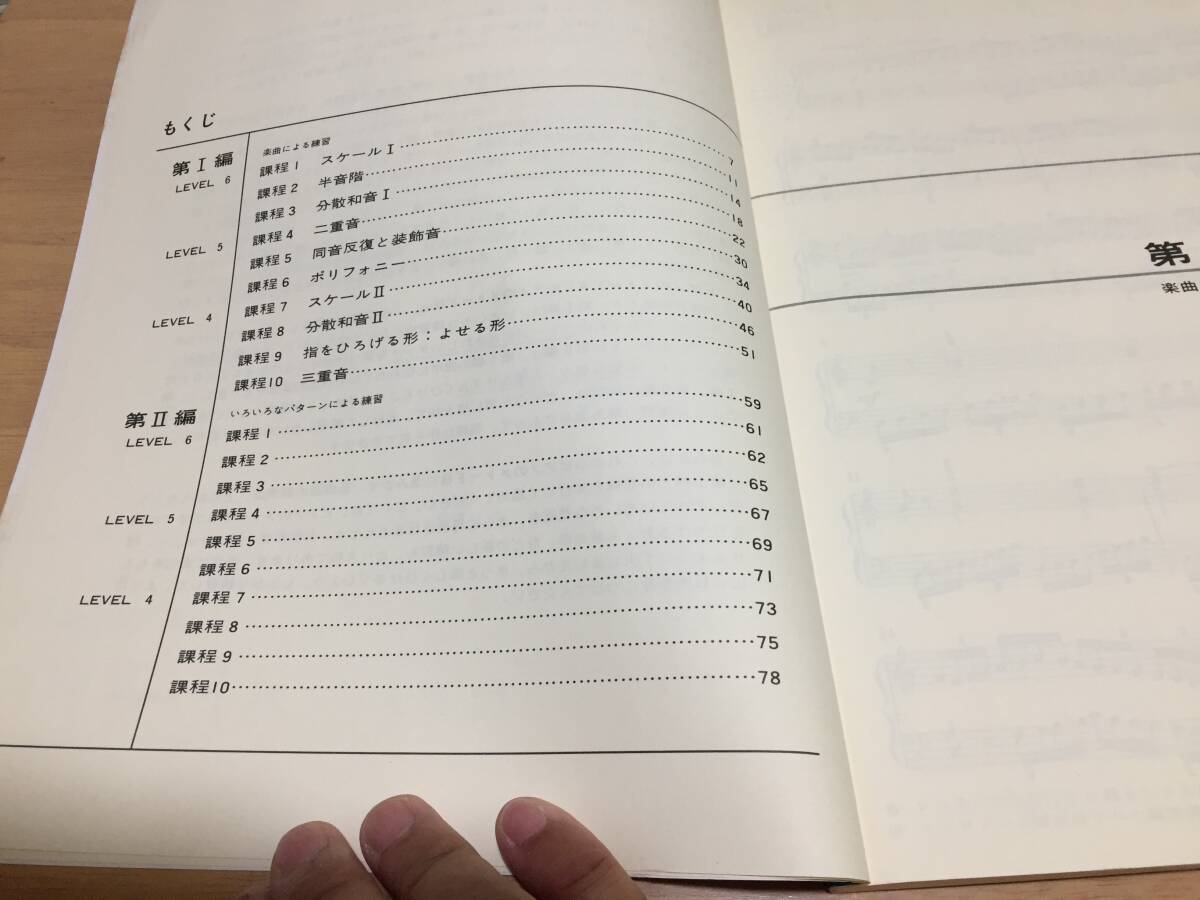 もくじ
第Ⅰ編 楽曲による練習
LEVEL 6 課程1 スケールⅠ 7
課程2 半音階 11
課程3 分散和音Ⅰ 14
課程4 二重音 18
LEVEL 5 課程5 同音反復と装飾音 22
課程6 ポリフォニー 30
課程7 スケールⅡ 34
LEVEL 4 課程8 分散和音Ⅱ 40
課程9 指をひろげる形：よせる形 46
課程10 三重音 51
第Ⅱ編 いろいろなパターンによる練習
LEVEL 6 課程1 59
課程2 61
課程3 62
LEVEL 5 課程4 65
課程5 67
課程6 69
LEVEL 4 課程7 71
課程8 73
課程9 75
課程10 78
第
楽曲